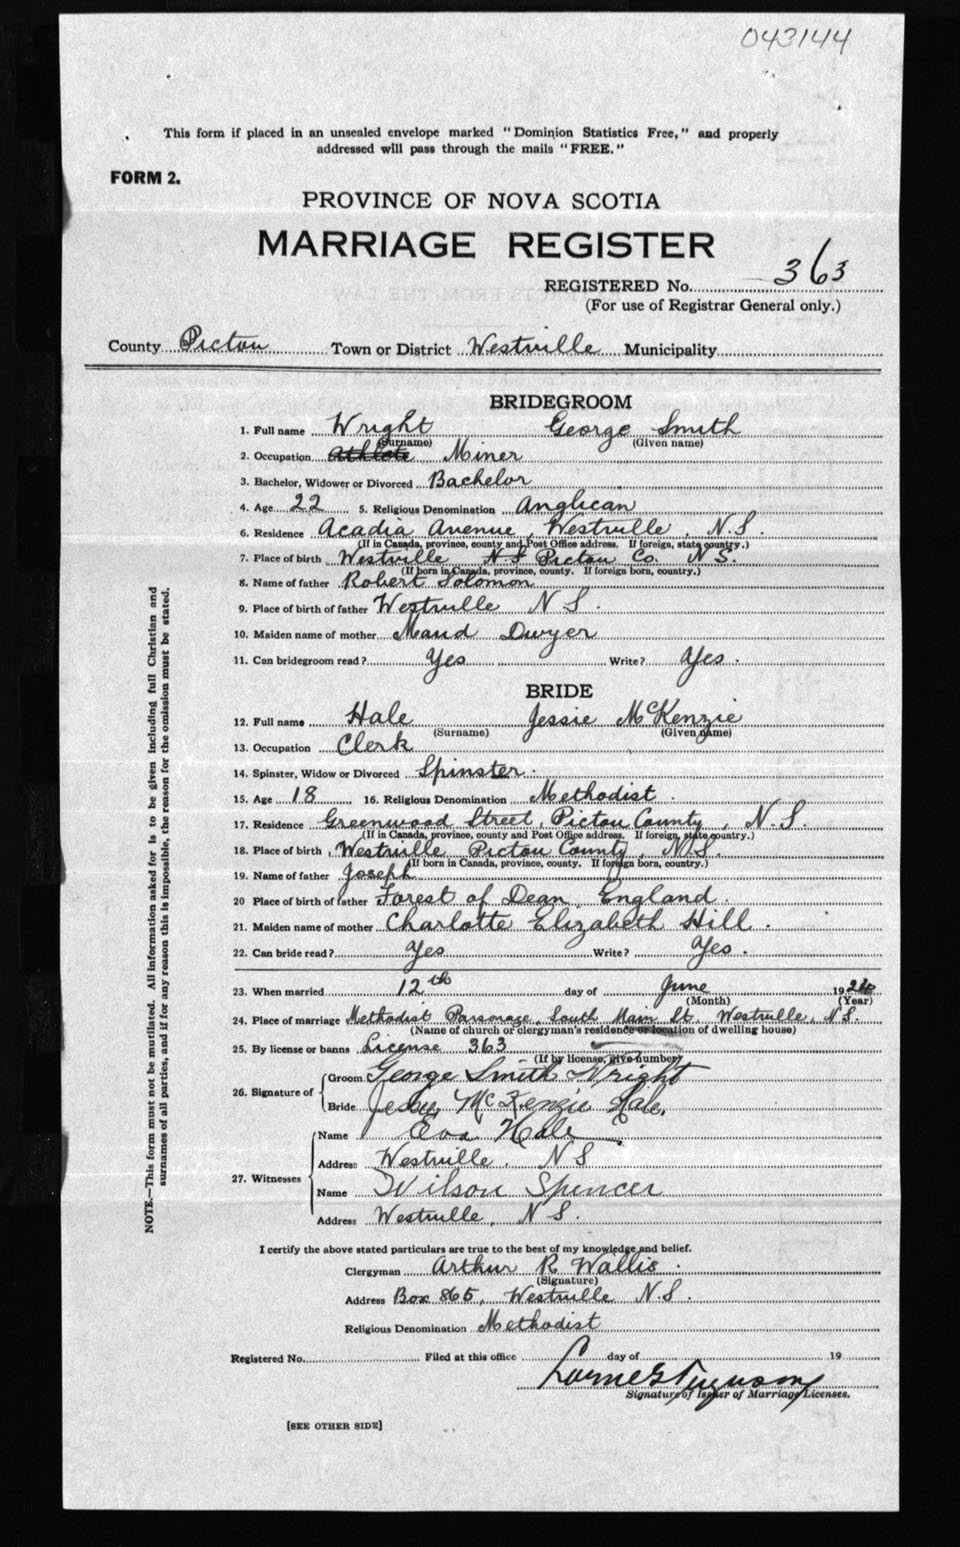 043144
This form if placed in an unsealed envelope marked "Dominion Statistics Free," and properly
addressed will pass through the mails "FREE."
FORM 2.
PROVINCE OF NOVA SCOTIA
MARRIAGE REGISTER
REGISTERED No. 363
(For use of Registrar General only.)
County Pictou Town or District Westville Municipality
BRIDEGROOM
1. Full name Wright George Smith
(Surname) (Given name)
2. Occupation Athlete Miner
3. Bachelor, Widower or Divorced Bachelor
4. Age 22 5. Religious Denomination Anglican
6. Residence Acadia Avenue, Westville, N.S.
(If in Canada, province, county and Post Office address. If foreign, state country.)
7. Place of birth Westville N S Pictou Co. N S.
(If born in Canada, province, county. If foreign born, country.)
8. Name of father Robert Solomon
9. Place of birth of father Westville N S.
10. Maiden name of mother Maud Dwyer
11. Can bridegroom read? Yes Write? Yes.
BRIDE
12. Full name Hale Jessie McKenzie
(Surname) (Given name)
13. Occupation Clerk
14. Spinster, Widow or Divorced Spinster.
15. Age 18 16. Religious Denomination Methodist.
17. Residence Greenwood Street, Pictou County, N.S.
(If in Canada, province, county and Post Office address. If foreign, state country.)
18. Place of birth Westville Pictou County, N.S.
(If born in Canada, province, county. If foreign born, country.)
19. Name of father Joseph
20 Place of birth of father Forest of Dean, England.
21. Maiden name of mother Charlotte Elizabeth Hill.
22. Can bride read? Yes Write? Yes.
23. When married 12th day of June 19
(Month) (Year)
24. Place of marriage Methodist Parsonage, South Main St. Westville, N.S.
(Name of church or clergyman's residence or location of dwelling house)
25. By license or banns License 363
(If by license, give number)
26. Signature of Groom George Smith Wright
Bride McKenzie Hale.
27. Witnesses Name Eva Hale
Address Westville, N S
Name Wilson Spencer
Address Westville, N S.
I certify the above stated particulars are true to the best of my knowledge and belief.
Clergyman Arthur R Wallis.
(Signature)
Address Box 865, Westville N.S.
Religious Denomination Methodist
Registered No. Filed at this office day of 19
Lorne G Ferguson
Signature of Issuer of Marriage Licenses.
[SEE OTHER SIDE]
NOTE.—This form must not be mutilated. All information asked for is to be given including full Christian and
surnames of all parties, and if for any reason this is impossible, the reason for the omission must be stated.